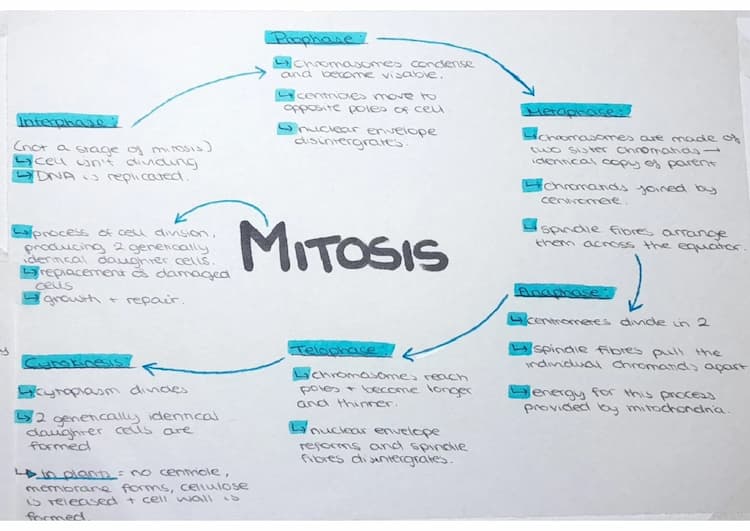 Prophase:
↳chromasomes condense
and become visable.
↳centrioles move to
opposite poles of cell.
↳nuclear envelope
disintergrates.
Metaphase:
↳chromasomes are made of
two sister chromatids →
identical copy of parent
↳chromands joined by
centromere.
↳spindle fibres arrange
them across the equator.
Anaphase:
↳centromeres divide in 2
↳spindle fibres pull the
individual chromands apart
↳energy for this process
provided by mitochondria.
Telophase:
↳chromasomes reach
poles + become longer
and thinner.
↳nuclear envelope
reforms and spindle
fibres disintergrates.
Cytokinesis
↳cytoplasm divides
↳2 genetically identical
daughter cells are
formed
↳in plants = no centriole,
membrane forms, cellulose
is released + cell wall is
formed.
Interphase:
(not a stage of mitosis)
↳cell isn't dividing
↳DNA is replicated.
MITOSIS
↳process of cell division,
producing 2 genetically
identical daughter cells.
↳replacement of damaged
cells
↳growth + repair.